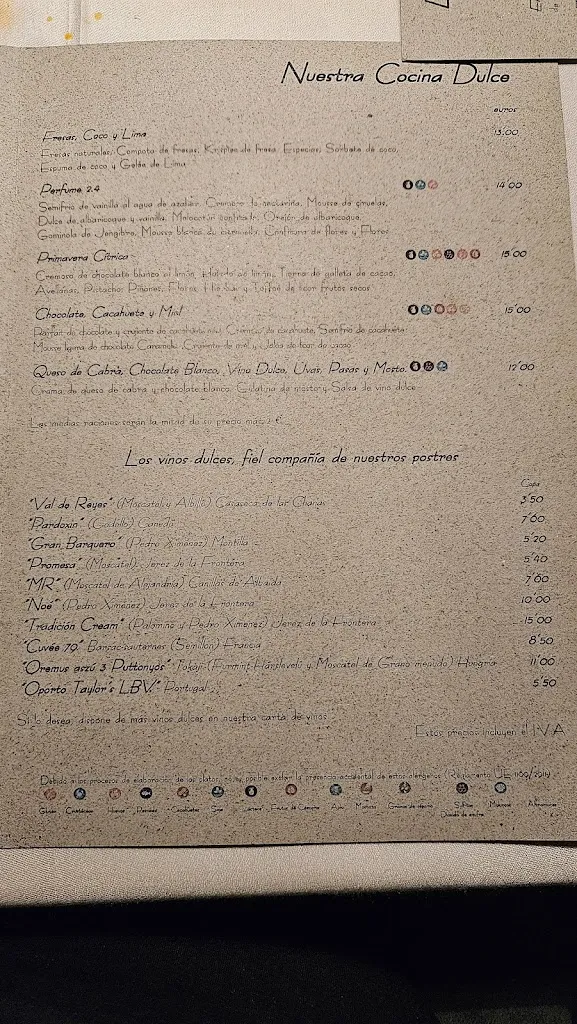 Nuestra Cocina Dulce
euros
Fresas, Coco y Lima 13'00
Fresas naturales, Compota de fresas, de fresa, Especias, Sorbete de coco,
Espuma de coco y Gelée de Lima
Perfume 2.4 14'00
Semifrío de vainilla al agua de azahar, Cremoso de nectarina, Mousse de ciruelas,
Dulce de albaricoque y vainilla, Melocotón confitado, Orejón de albaricoque,
Gominola de Jengibre, Mousse blanca de citronella, Confitura de flores y Flores
Primavera Cítrica 15'00
Cremoso de chocolate blanco al limón, Helado de limón, Tierra de galleta de cacao,
Avellanas, Pistachos, Piñones, Flores, y Toffee de licor frutos secos
Chocolate, Cacahuete y Miel 15'00
Parfait de chocolate y crujiente de cacahuete miel, Cremoso de cacahuete, Semifrío de cacahuete,
Mousse ligera de chocolate Caramelo, Crujiente de miel y de licor de cacao
Queso de Cabra, Chocolate Blanco, Vino Dulce, Uvas, Pasas y Mosto. 12'00
Crema de queso de cabra y chocolate blanco, Gelatina de mosto y Salsa de vino dulce
Las medias raciones serán la mitad de su precio más €
Los vinos dulces, fiel compañía de nuestros postres
Copa
"Val de Reyes" (Moscatel y Albillo) Casaseca de las Chanas 3'50
"Pardoxin" (Godello) Canedo 7'60
"Gran Barquero" (Pedro Ximénez) Montilla 5'20
"Promesa" (Moscatel) Jerez de la Frontera 5'40
"MR" (Moscatel de Alejandría) Canillas de Albaida 7'60
"Noé" (Pedro Ximénez) Jerez de la Frontera 10'00
"Tradición Cream" (Palomino y Pedro Ximénez) Jerez de la Frontera 15'00
"Cuvée 79" Barsac-sauternes (Semillón) Francia 8'50
"Oremus aszú 3 Puttonyos" Tokaji (Furmint, Hárslevelü y Moscatel de Grano menudo) Hungría 11'00
"Oporto Taylor's L.B.V." Portugal 5'50
Si lo desea, dispone de más vinos dulces en nuestra carta de vinos
Estos precios incluyen el I.V.A
Debido a los procesos de elaboración de los platos, no es posible excluir la presencia accidental de estos alérgenos (Reglamento UE 1169/2011)
Gluten Crustáceos Huevos Pescado Cacahuetes Soja Lácteos Frutos de Cáscara Apio Mostaza Granos de sésamo Sulfitos Moluscos Altramuces
Dióxido de azufre